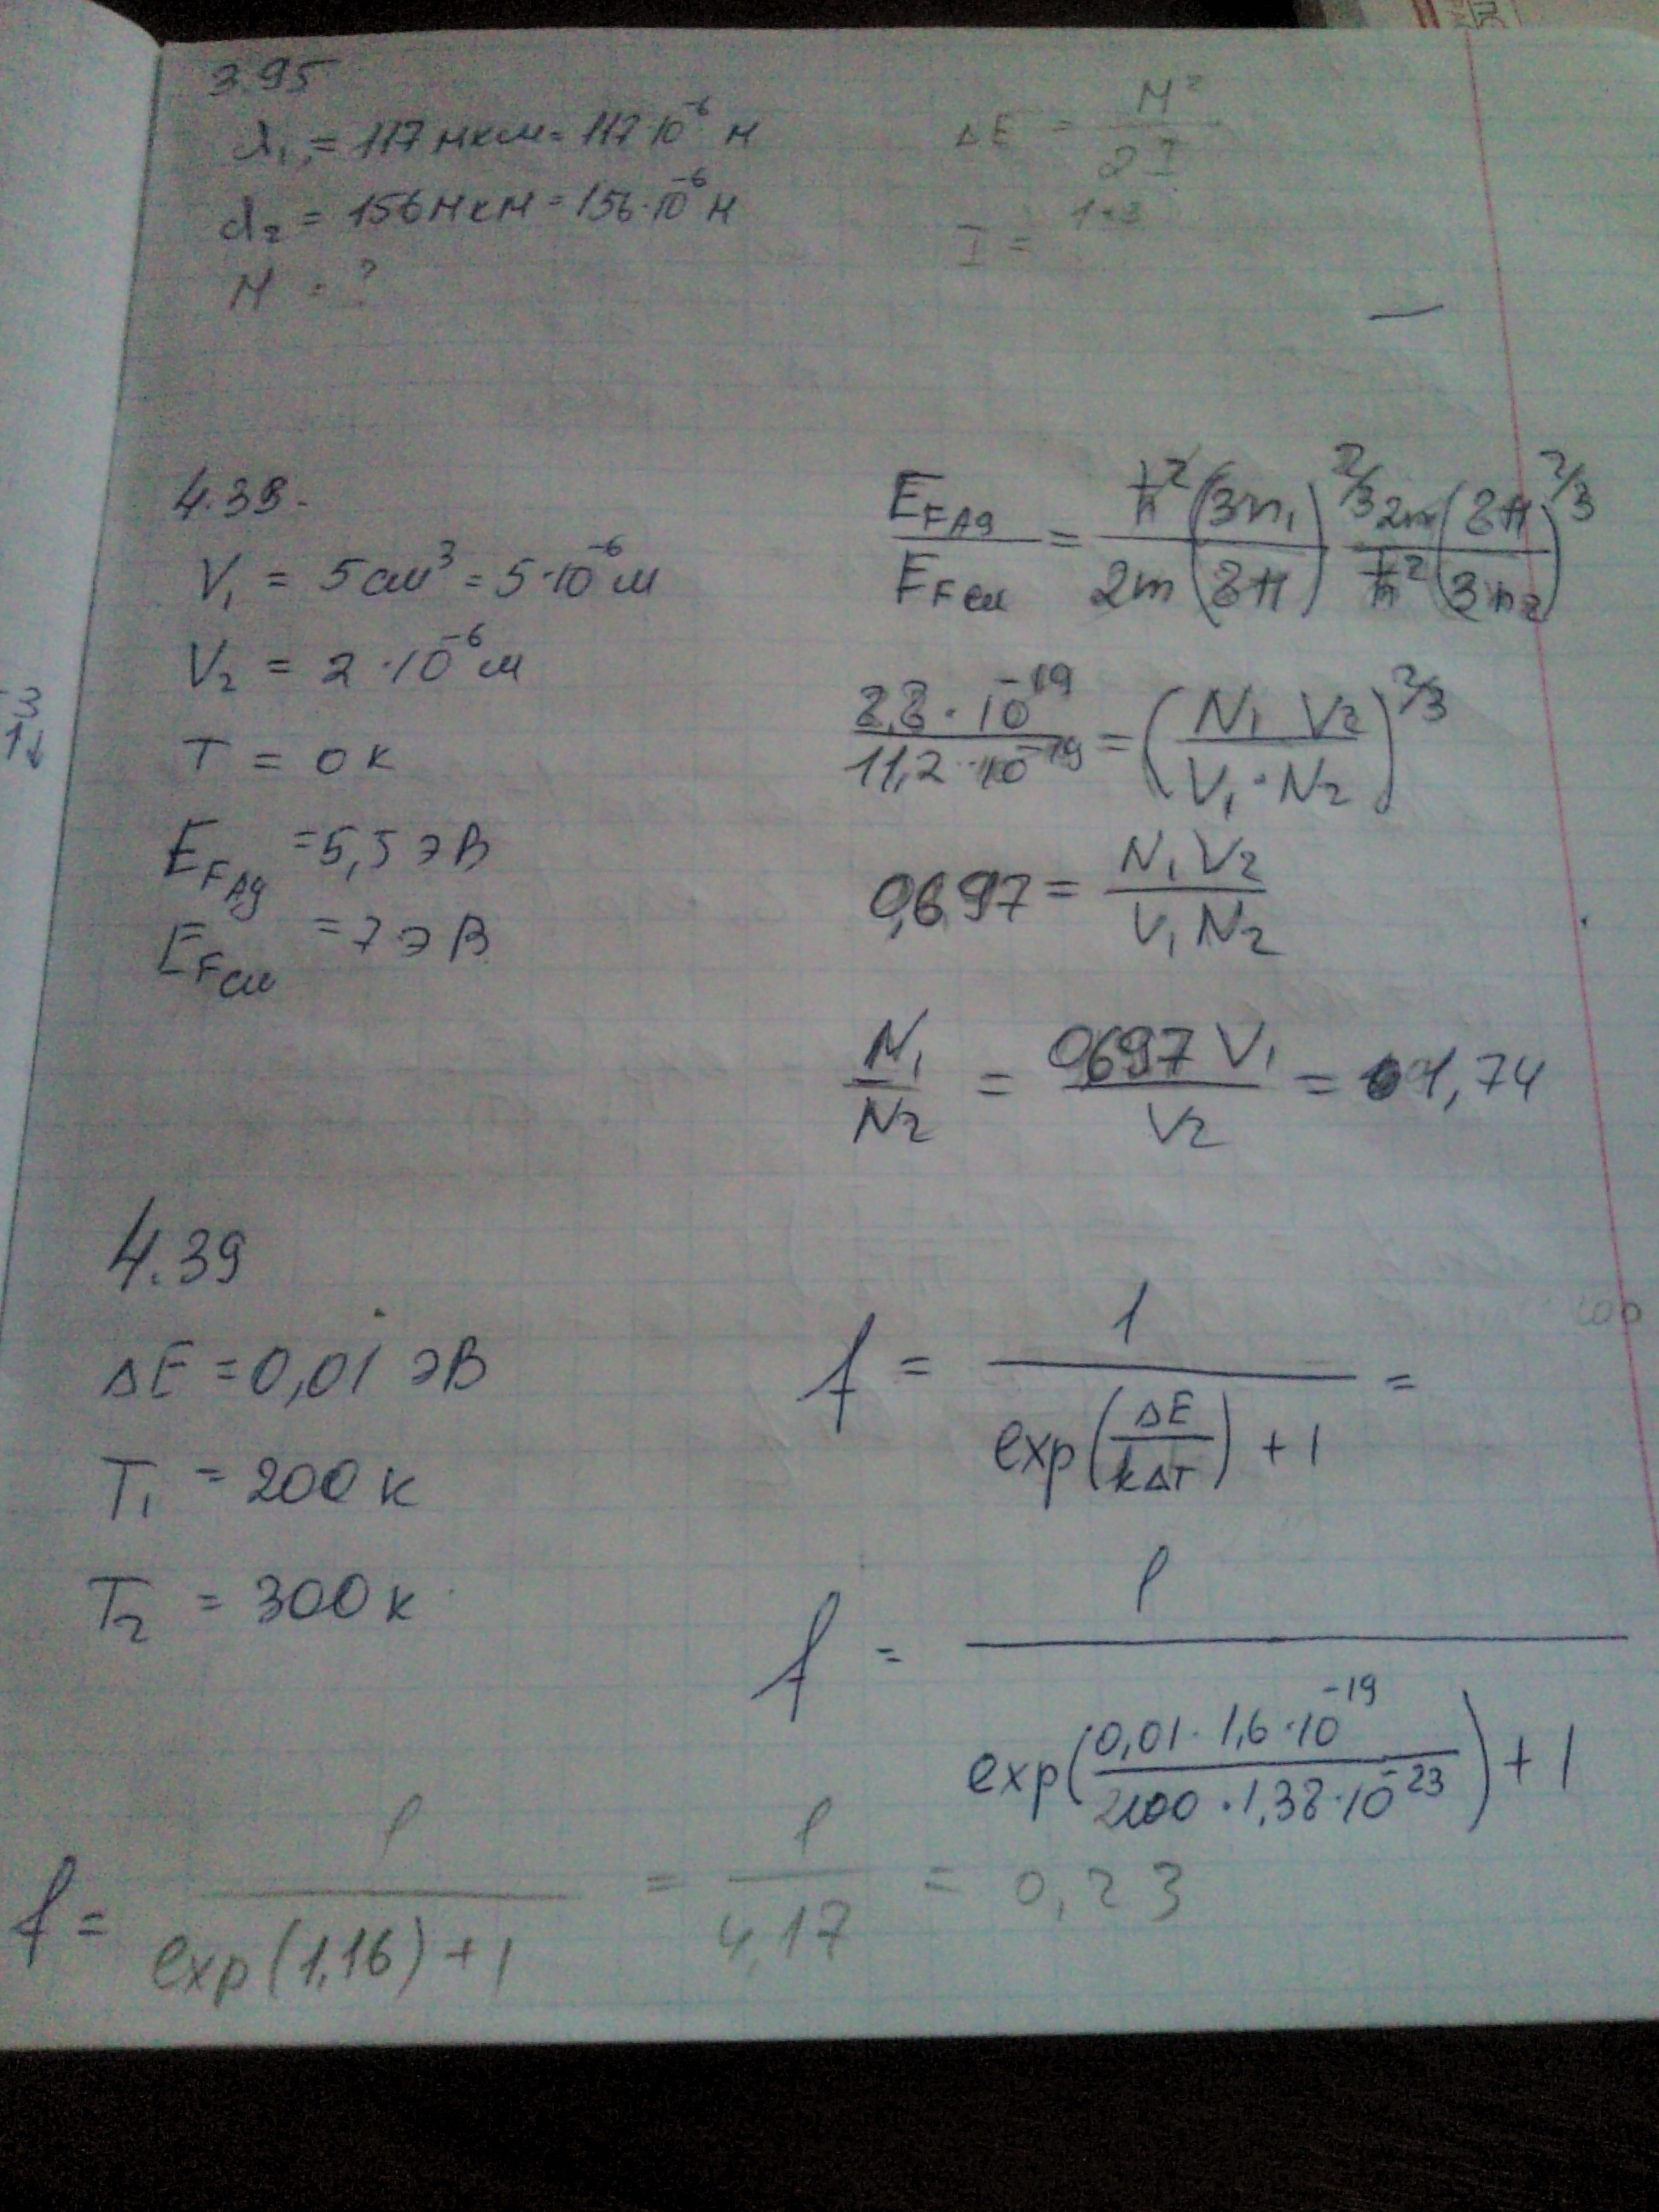 3.95
λ₁ = 117 мкм = 117·10⁻⁶ м
λ₂ = 156 мкм = 156·10⁻⁶ м
M = ?
ΔE = M² / 2I
I =
4.38.
V₁ = 5 см³ = 5·10⁻⁶ м
V₂ = 2·10⁻⁶ м
T = 0 К
E_FAg = 5,5 эВ
E_FCu = 7 эВ
E_FAg / E_FCu = ħ²/2m (3n₁/8π)^2/3 2m/ħ² (8π/3n₂)^2/3
8,8·10⁻¹⁹ / 11,2·10⁻¹⁹ = (N₁ V₂ / V₁·N₂)^2/3
0,697 = N₁ V₂ / V₁ N₂
N₁/N₂ = 0,697 V₁ / V₂ = 1,74
4.39
ΔE = 0,01 эВ
T₁ = 200 к
T₂ = 300 к
f = 1 / (exp(ΔE/kΔT) + 1) =
f = 1 / (exp(0,01·1,6·10⁻¹⁹ / 100·1,38·10⁻²³) + 1)
f = 1 / (exp(1,16) + 1) = 1/4,17 = 0,23
-3
1↓